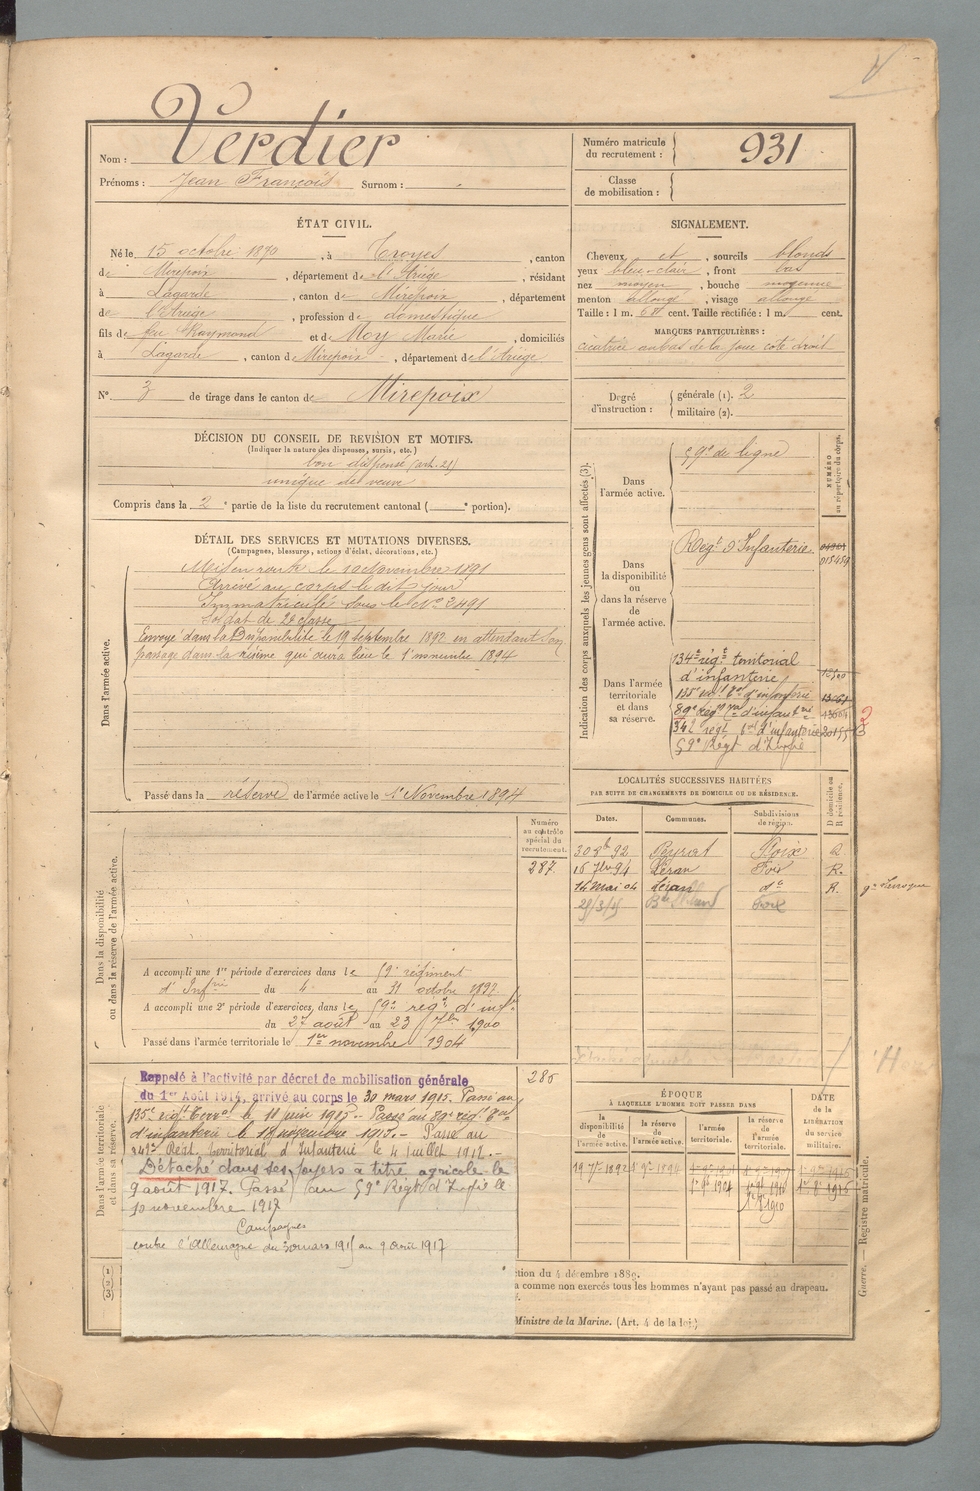 Nom : Verdier
Prénoms : Jean François Surnom :
Numéro matricule
du recrutement : 931
Classe
de mobilisation :
ÉTAT CIVIL.
Né le 15 octobre 1870, à Troyes, canton
de Mirepoix, département de l'Ariège, résidant
à Lagarde, canton de Mirepoix, département
de l'Ariège, profession de domestique
fils de feu Raymond et de Moy Marie, domiciliés
à Lagarde, canton de Mirepoix, département de l'Ariège
N° 3 de tirage dans le canton de Mirepoix
SIGNALEMENT.
Cheveux et, sourcils blonds
yeux bleu-clair, front bas
nez moyen, bouche moyenne
menton allongé, visage allongé
Taille : 1 m. 68 cent. Taille rectifiée : 1 m. cent.
MARQUES PARTICULIÈRES :
cicatrice au bas de la joue coté droit
Degré
d'instruction :
générale (1). 2
militaire (2).
DÉCISION DU CONSEIL DE REVISION ET MOTIFS.
(Indiquer la nature des dispenses, sursis, etc.)
bon dispensé (art. 21)
unique de veuve
Compris dans la 2e partie de la liste du recrutement cantonal ( e portion).
DÉTAIL DES SERVICES ET MUTATIONS DIVERSES.
(Campagnes, blessures, actions d'éclat, décorations, etc.)
Dans l'armée active.
Mis en route le 10 Novembre 1891
Arrivé au corps le dit jour
Immatriculé sous le N° 3491
Soldat de 2e classe
Envoyé dans la Disponibilité le 19 septembre 1892 en attendant son
passage dans la réserve qui aura lieu le 1er novembre 1894
Passé dans la réserve de l'armée active le 1er Novembre 1894
Indication des corps auxquels les jeunes gens sont affectés (3).
NUMÉRO
au répertoire du corps.
Dans
l'armée active.
59e de ligne
Dans
la disponibilité
ou dans la réserve
de
l'armée active.
Regt d'Infanterie
Dans l'armée
territoriale
et dans
sa réserve.
134e régt territorial
d'infanterie
135e
89e
342 régt
59e Régt d'Infie
LOCALITÉS SUCCESSIVES HABITÉES
PAR SUITE DE CHANGEMENTS DE DOMICILE OU DE RÉSIDENCE.
Dates. Communes. Subdivisions
de région. D. domicile ou
R. résidence.
92 Peyrat Foix R.
94 Léran Foix R.
14 Mai 04 Léran do R.
28/3/15 Foix
Dans la disponibilité
ou dans la réserve de l'armée active.
Numéro
au contrôle
spécial du
recrutement.
287
A accompli une 1re période d'exercices dans le 59e régiment
d'Infrie du 4 au 31 octobre 1897
A accompli une 2e période d'exercices, dans le 59e régt d'infie
du 27 août au 23 7bre 1900
Passé dans l'armée territoriale le 1er novembre 1904
Dans l'armée territoriale
et dans sa réserve.
286
Rappelé à l'activité par décret de mobilisation générale
du 1er Août 1914, arrivé au corps le 30 mars 1915. Passé au
135e régt Terral le 11 juin 1915.- Passé au 89e régt Teral
d'infanterie le 18 novembre 1915.- Passé au
342e Régt. Territorial d'Infanterie le 4 juillet 1917.-
Détaché dans ses foyers à titre agricole le
9 août 1917. Passé au 59e Régt d'Infie le
10 novembre 1917
Campagnes
contre l'Allemagne du 30 mars 1915 au 9 Août 1917
ÉPOQUE
À LAQUELLE L'HOMME DOIT PASSER DANS
la
disponibilité
de
l'armée active.
la réserve
de
l'armée active.
l'armée
territoriale.
la réserve
de
l'armée
territoriale.
DATE
de la
LIBÉRATION
du service
militaire.
19 7bre 1892
1er 9bre 1894
Guerre. — Registre matricule.
ction du 4 décembre 1889.
a comme non exercés tous les hommes n'ayant pas passé au drapeau.
Ministre de la Marine. (Art. 4 de la loi.)